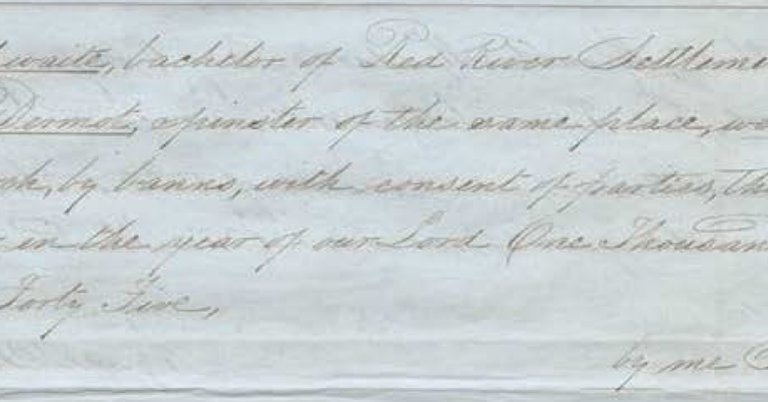 waite, bachelor of Red River Settleme
Dermot, spinster of the same place, w
by banns, with consent of parties, th
in the year of our Lord One Thousan
Forty Five,
by me